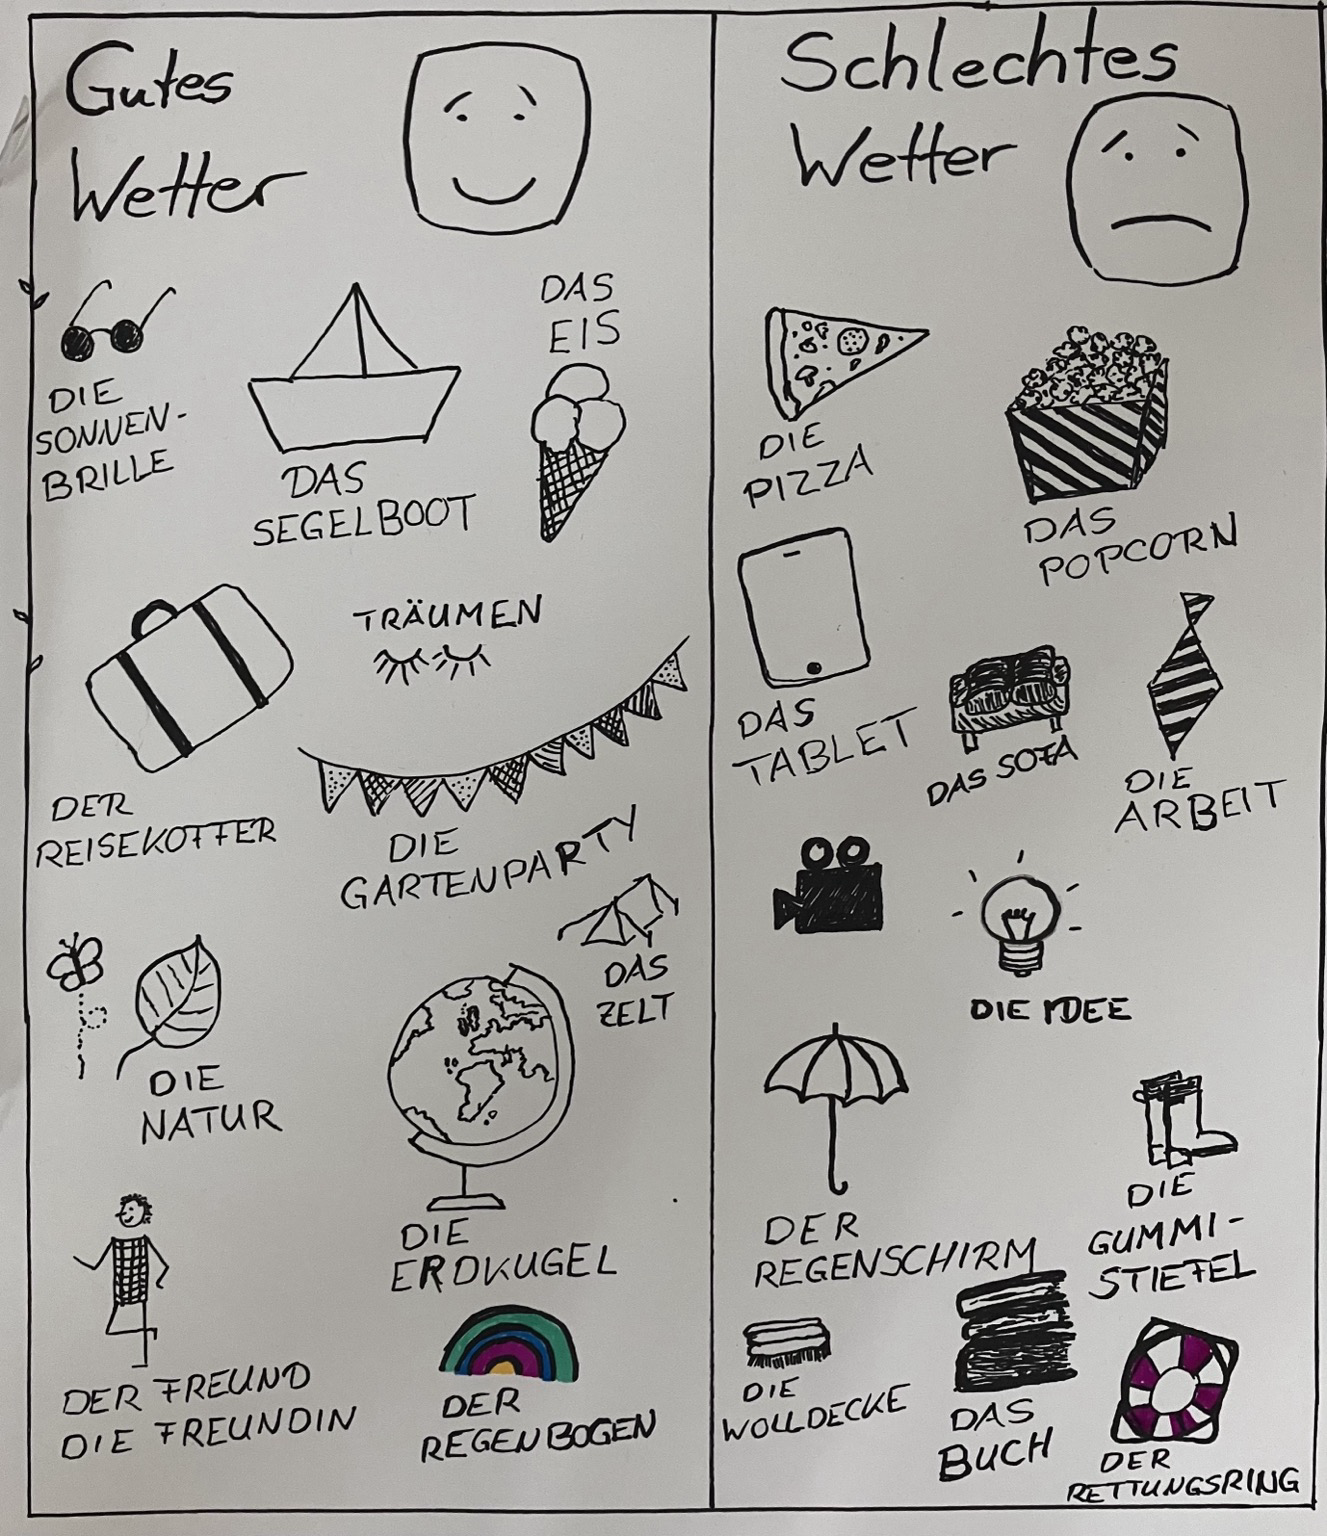 Gutes
Wetter
DIE
SONNEN-
BRILLE
DAS
SEGELBOOT
DAS
EIS
DER
REISEKOFFER
TRÄUMEN
DIE
GARTENPARTY
DIE
NATUR
DAS
ZELT
DIE
ERDKUGEL
DER FREUND
DIE FREUNDIN
DER
REGENBOGEN
Schlechtes
Wetter
DIE
PIZZA
DAS
POPCORN
DAS
TABLET
DAS SOFA
DIE
ARBEIT
DIE IDEE
DER
REGENSCHIRM
DIE
GUMMI-
STIEFEL
DIE
WOLLDECKE
DAS
BUCH
DER
RETTUNGSRING